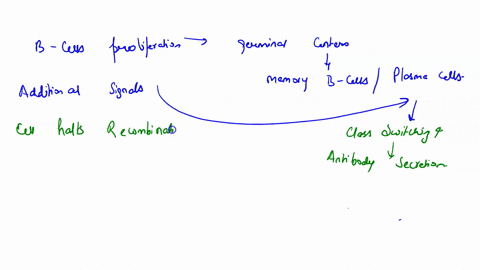 B-Cells proliferation → Germinal Centers
↓
Memory B-Cells / Plasma Cells
Additional Signals
Cell halts Recombinato
Class Switching &
↓
Antibody Secretion